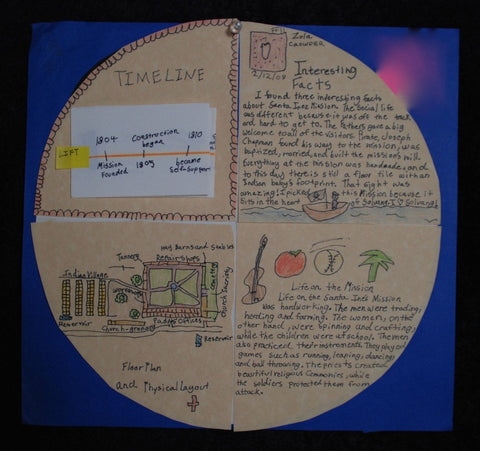 TIMELINE
LIFT
1804
Construction
began
1810
Mission
Founded
1809
became
Self-Support
Zula
2/12/09
Interesting
Facts
I found three interesting facts
about Santa Ines Mission. The Social life
was different because it was off the track
and hard to get to. The Fathers gave a big
welcome to all of the visitors. Pirate, Joseph
Chapman found his way to the mission, was
bapized, married, and built the mission's mill.
Everything at the mission was handmade, and
to this day there is still a floor tile with an
Indian baby's footprint. That sight was
amazing! I picked this Mission because it
sits in the heart of Solvang. I Solvang!
Hay Barns and Stables
Tannery
Repair shops
Indian Village
Cemetery
Church Sacristy
Reservoir
Padres Offices
Church-granery
Reservoir
Floor Plan
and Physical layout
Life on the Mission
Life on the Santa Ines Mission
was hardworking. The men were trading,
herding and farming. The women, on the
other hand, were spinning and crafting,
while the children were at school. The men
also practiced their instruments. They played
games such as running, leaping, dancing
and ball throwing. The priests created
beautiful religious Ceremonies, while
the soldiers protected them from
attack.